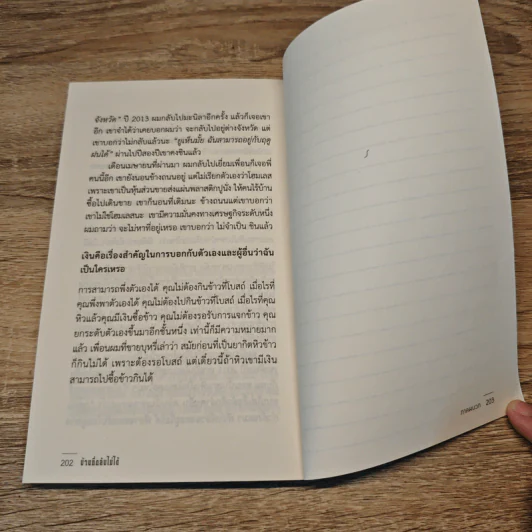 จังหวัด" ปี 2013 ผมกลับไปมะนิลาอีกครั้ง แล้วก็เจอเขา
อีก เขาจำได้ว่าเคยบอกผมว่า จะกลับไปอยู่ต่างจังหวัด แต่
เขาบอกว่าไม่กลับแล้วนะ "ยูเห็นมั้ย ฉันสามารถอยู่กับฤดู
ฝนได้" ผ่านไปปีสองปีเขาคงชินแล้ว
เดือนเมษายนที่ผ่านมา ผมกลับไปเยี่ยมเพื่อนก็เจอพี่
คนนี้อีก เขายังนอนข้างถนนอยู่ แต่ไม่เรียกตัวเองว่าโฮมเลส
เพราะเขาเป็นหุ้นส่วนขายส่งแผ่นพลาสติกปูนั่ง ให้คนไร้บ้าน
ซื้อไปเดินขาย เขาก็นอนที่เดิมนะ ข้างถนนแต่เขาบอกว่า
เขาไม่ใช่โฮมเลสนะ เขามีความมั่นคงทางเศรษฐกิจระดับหนึ่ง
ผมถามว่า จะไม่หาที่อยู่เหรอ เขาบอกว่า ไม่จำเป็น ชินแล้ว
เงินคือเรื่องสำคัญในการบอกกับตัวเองและผู้อื่นว่าฉัน
เป็นใครเหรอ
การสามารถพึ่งตัวเองได้ คุณไม่ต้องกินข้าวที่โบสถ์ เมื่อไรที่
คุณพึ่งพาตัวเองได้ คุณไม่ต้องไปกินข้าวที่โบสถ์ เมื่อไรที่คุณ
หิวแล้วคุณมีเงินซื้อข้าว คุณไม่ต้องรอรับการแจกข้าว คุณ
ยกระดับตัวเองขึ้นมาอีกชั้นหนึ่ง เท่านี้ก็มีความหมายมาก
แล้ว เพื่อนผมที่ขายบุหรี่เล่าว่า สมัยก่อนที่เป็นยาก็ดหิวข้าว
ก็กินไม่ได้ เพราะต้องรอโบสถ์ แต่เดี๋ยวนี้ถ้าหิวเขามีเงิน
สามารถไปซื้อข้าวกินได้
202 บ้านที่กลับไม่ได้
ภาคผนวก 203